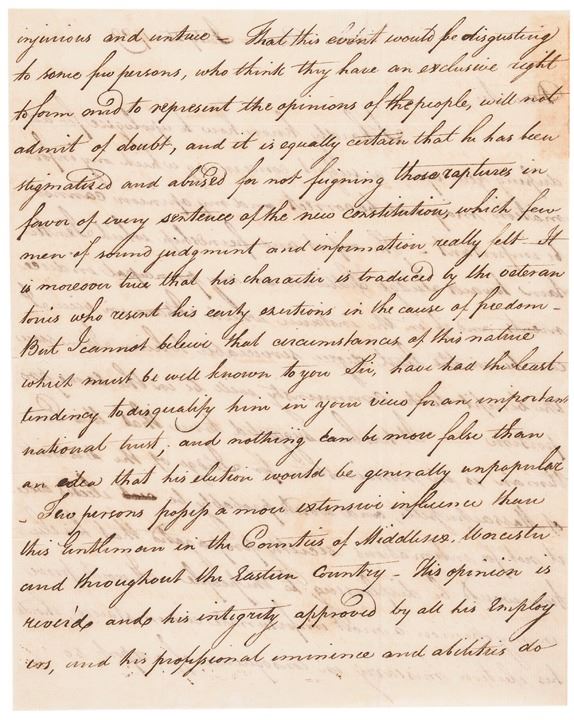 injurious and untrue – That this event would be disgusting
to some few persons, who think they have an exclusive right
to form and to represent the opinions of the people, will not
admit of doubt, and it is equally certain that he has been
stigmatized and abused for not feigning those raptures in
favor of every sentence of the new constitution, which few
men of sound judgment and information really felt – It
is moreover true that his character is traduced by the veteran
tories who resent his early exertions in the cause of freedom –
But I cannot beleive that circumstances of this nature
which must be well known to you Sir, have had the least
tendency to disqualify him in your view for an important
national trust, and nothing can be more false than
an idea that his election would be generally unpopular
– Few persons possess a more extensive influence than
this Gentleman in the Counties of Middlesex, Worcester
and throughout the Eastern Country – His opinion is
rever'd and his integrity approved by all his Employ
ers, and his professional eminence and abilities do